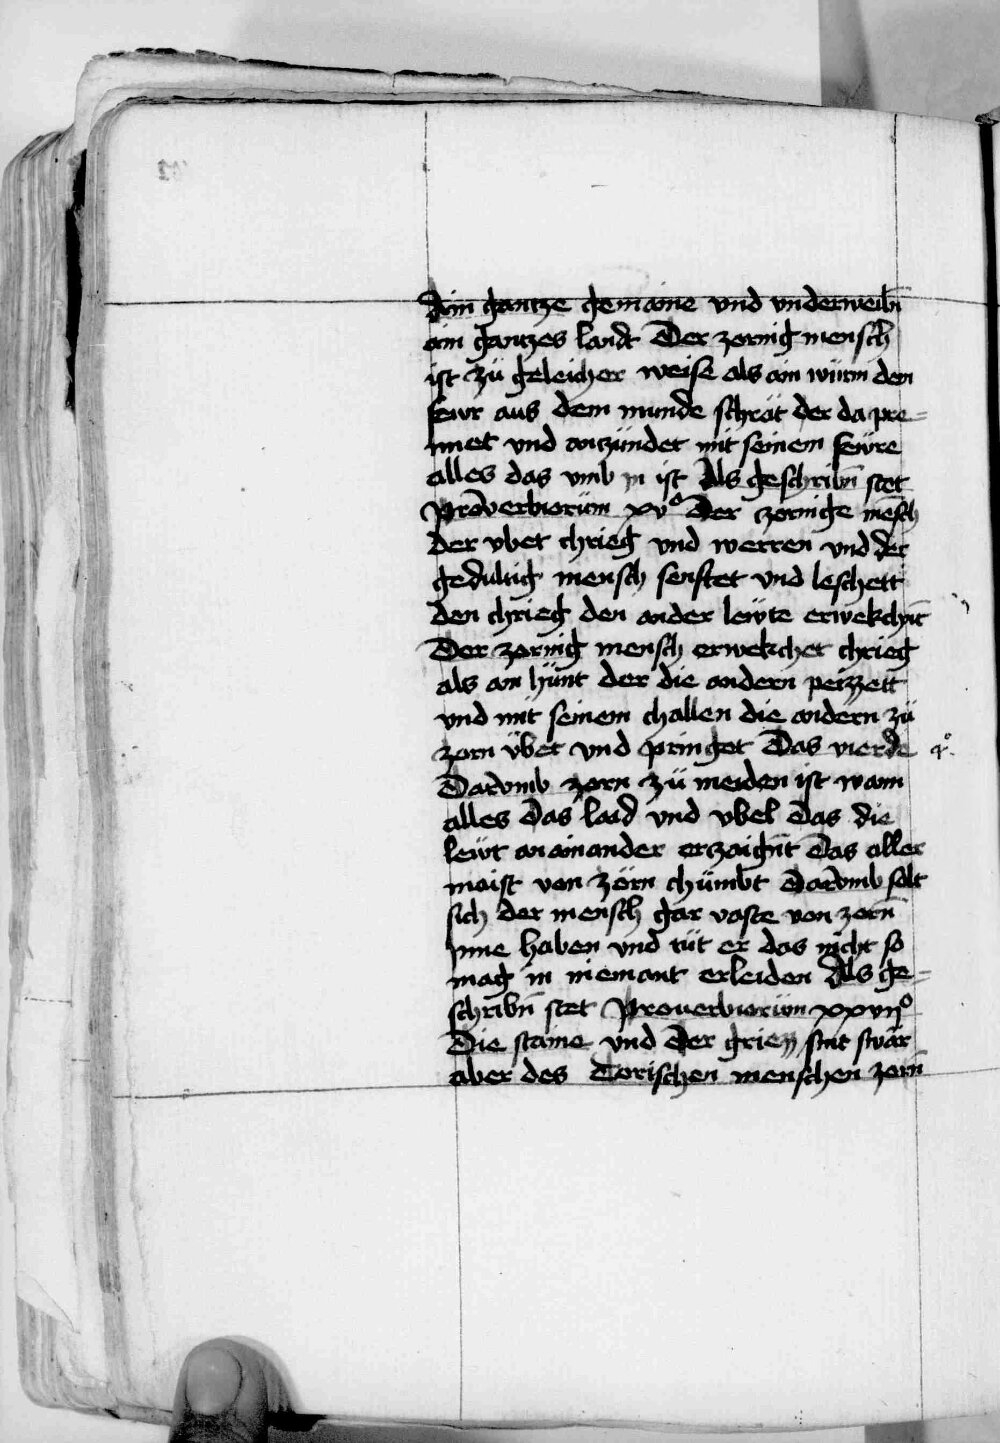 Ain gantze gemaine vnd vnderweiln̄
ain gantzes landt Der zornig mensch
ist zü geleicher weise als ain würm den
fewr aus dem munde schrät der da pre=
nnet vnd anzündet mit seinem fewre
alles das vmb in ist Als geschribn̄ stet
Proverbiorüm xv° Der zornige mēsch
der vbet chrieg vnd werren vnd der
gedultig mensch senftet vnd leschett
den chrieg den ander lewte erwekchnt̄
Der zornig mensch erwekchet chrieg
als ain hünt der die andern peizzett
vnd mit seinem challen die andern zü
zorn übet vnd pringet Das vierde
Darvmb zorn zü meiden ist wann
alles das laid vnd vbel das die
lewt an ainander erzaignt̄ Das aller
maist von zorn chümbt Darvmb solt
sich der mensch gar vaste von zorn̄
jnne haben vnd tüt er das nicht so
mag in niemant erleiden Als ge=
schribn̄ stet Prouerbiorüm xxvij°
Die staine vnd der griezz sint swär
aber des Torischen menschen zorn̄